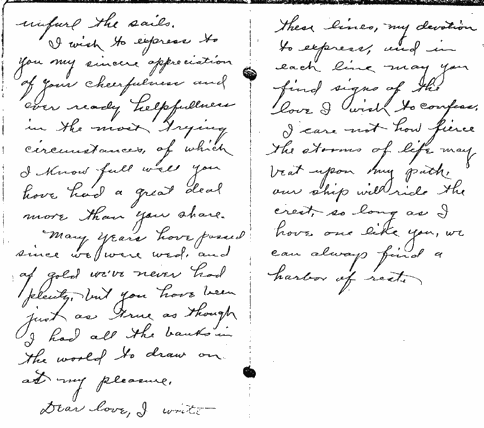 unfurl the sails.
I wish to express to
you my sincere appreciation
of your cheerfulness and
ever ready helpfullness
in the most trying
circumstances, of which
I know full well you
have had a great deal
more than your share.
Many years have passed
since we were wed, and
of gold we've never had
plenty, but you have been
just as true as though
I had all the banks in
the world to draw on
at my pleasure.
Dear love, I write
these lines, my devotion
to express, and in
each line may you
find signs of the
love I wish to confess.
I care not how fierce
the storms of life may
beat upon my path,
our ship will ride the
crest, so long as I
have one like you, we
can always find a
harbor of rest.